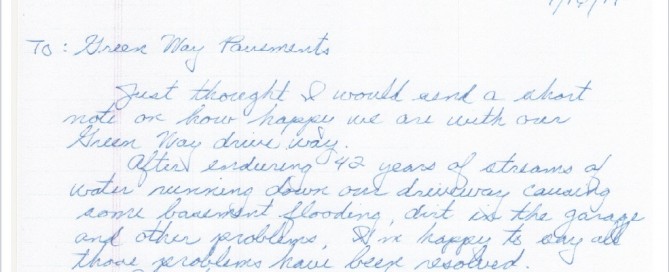 To: Green Way Pavements
Just thought I would send a short
note on how happy we are with our
Green Way drive way.
After enduring 42 years of streams of
water running down our driveway causing
some basement flooding, dirt in the garage
and other problems, I'm happy to say all
those problems have been resolved.